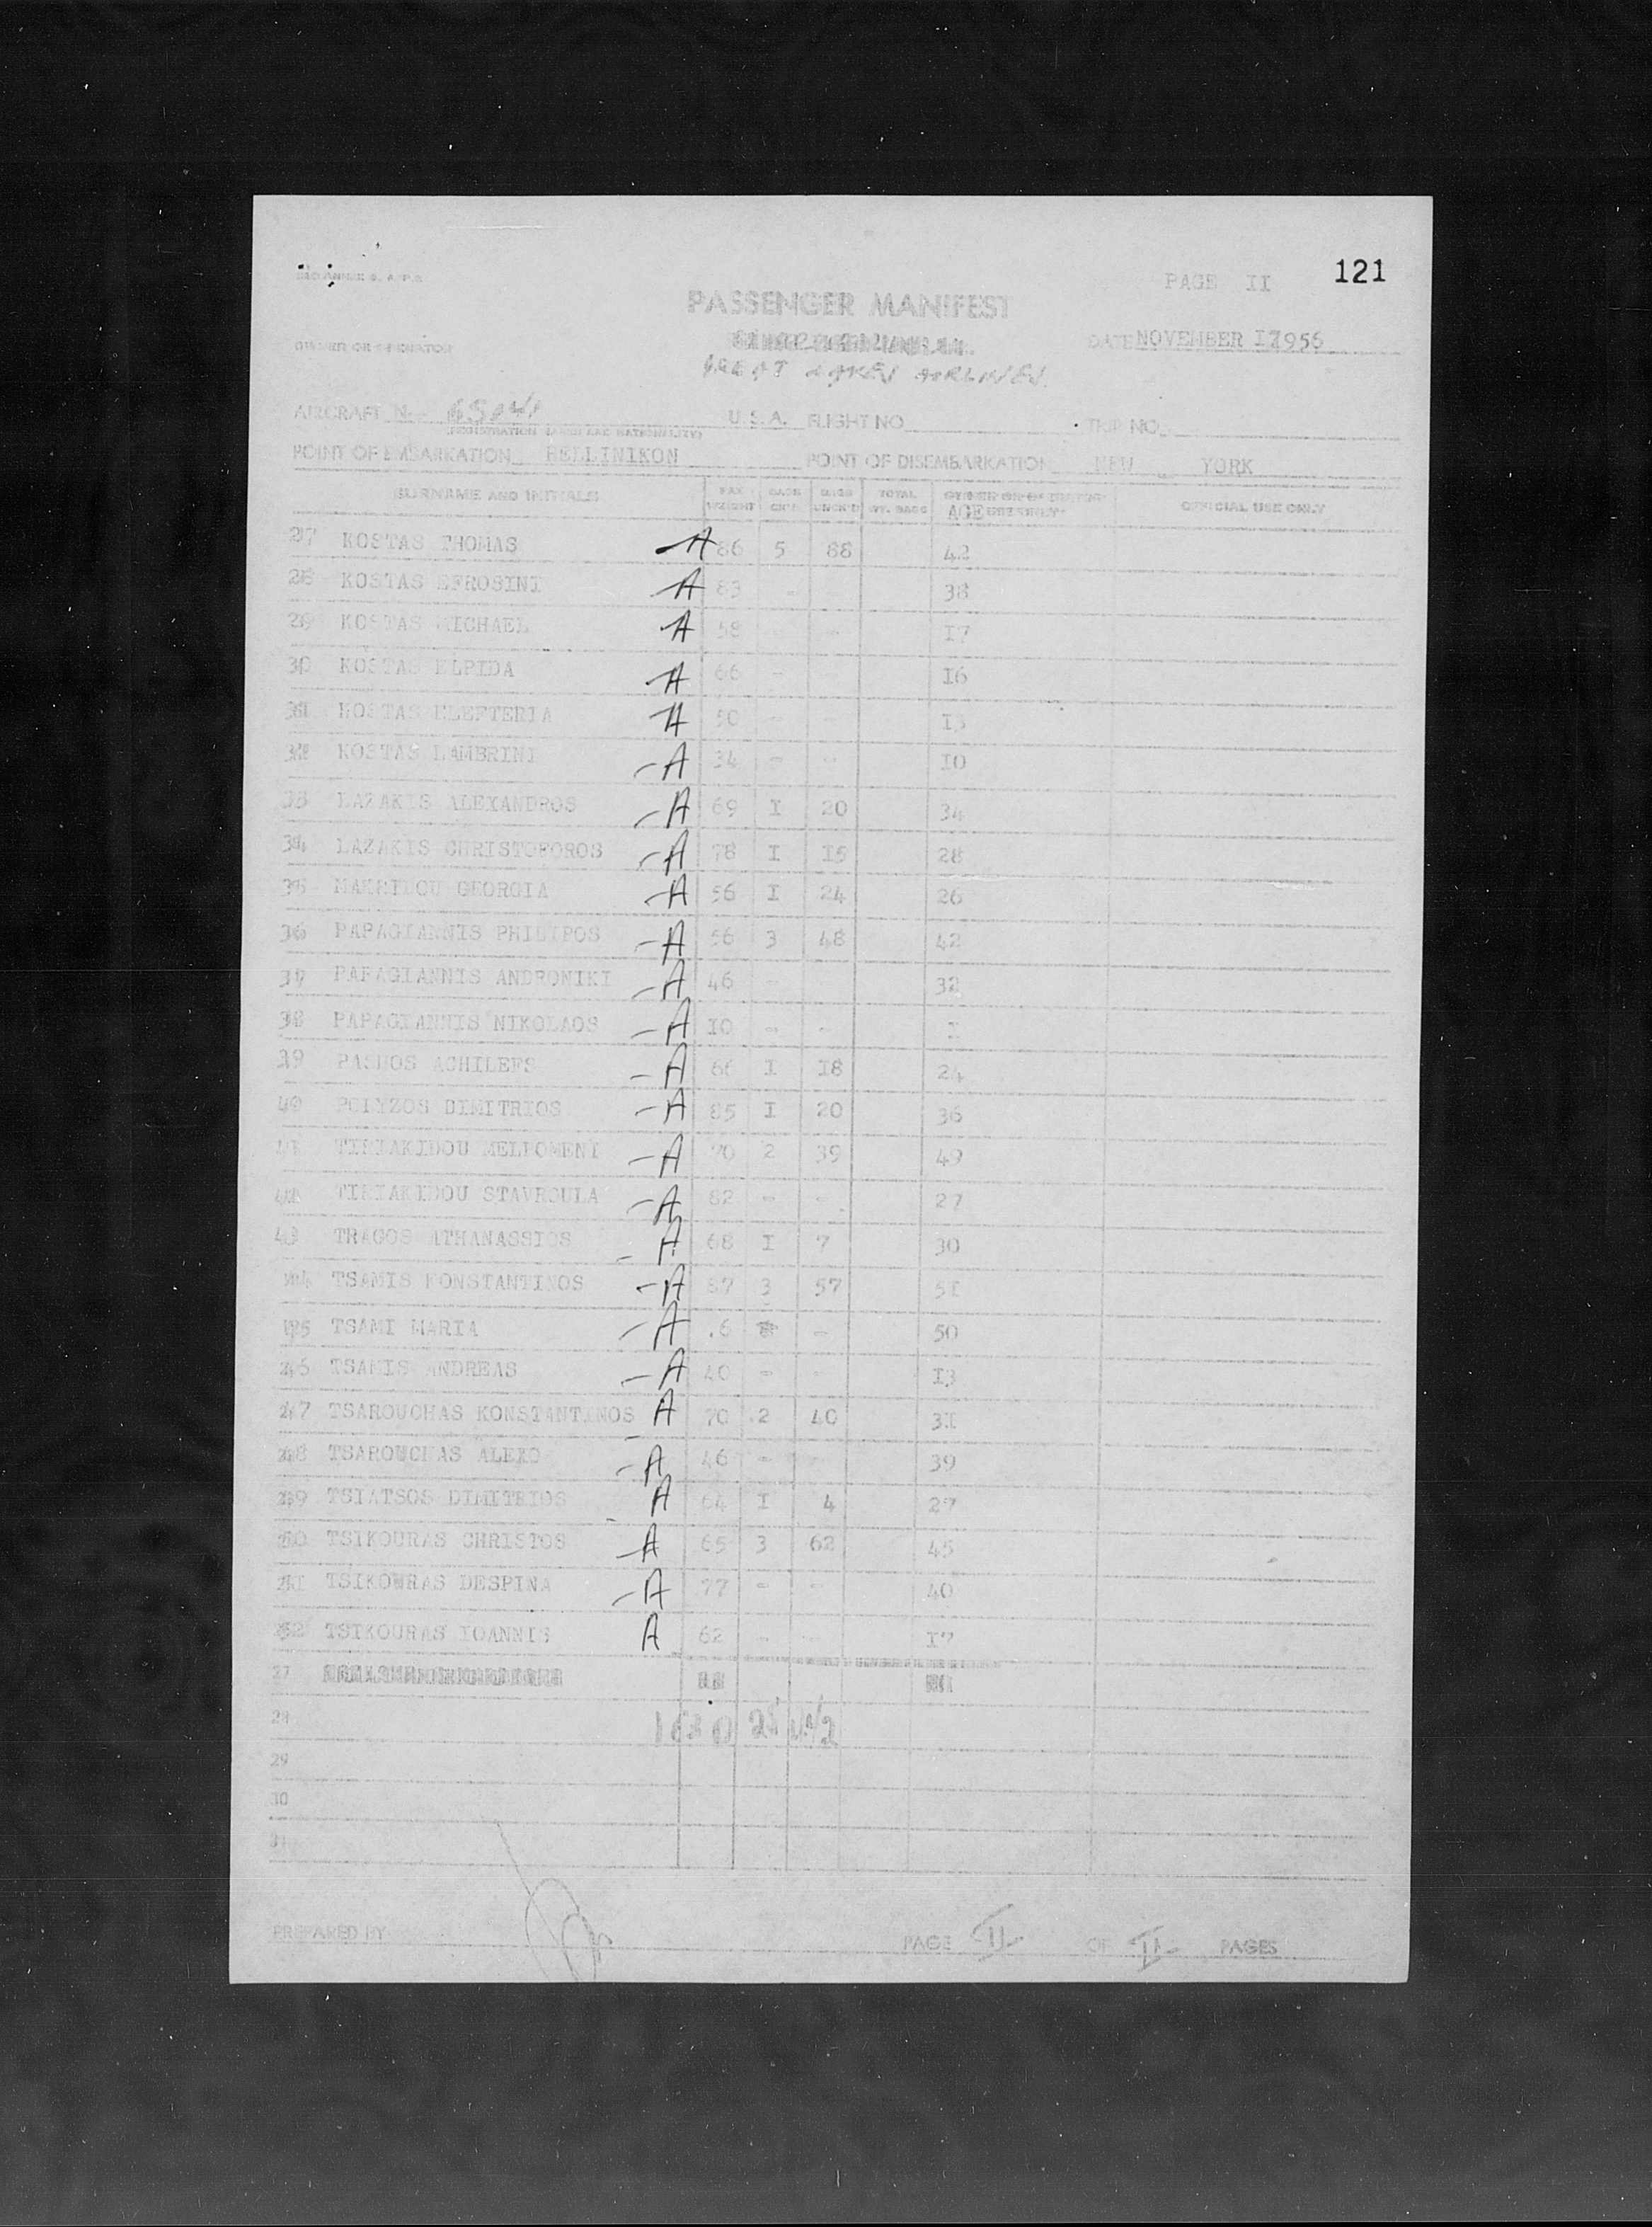 PAGE II 121
PASSENGER MANIFEST
OWNER OR OPERATOR DATE NOVEMBER 17956
GREAT LAKES AIRLINES.
AIRCRAFT No. U.S.A. FLIGHT NO TRIP NO.
(REGISTRATION MARKS AND NATIONALITY)
POINT OF EMBARKATION HELLINIKON POINT OF DISEMBARKATION NEW YORK
SURNAME AND INITIALS PAX WEIGHT BAGS CK'D BAGS UNCK'D TOTAL WT. BAGS AGE OFFICIAL USE ONLY
27 KOSTAS THOMAS A 86 5 88 42
28 KOSTAS EFROSINI A 83 - 38
29 KOSTAS MICHAEL A 58 - - 17
30 KOSTAS ELPIDA A 66 - 16
31 KOSTAS ELEFTERIA A 50 - - 13
32 KOSTAS LAMBRINI A 34 - - IO
33 LAZAKIS ALEXANDROS A 69 I 20 34
34 LAZAKIS CHRISTOFOROS A 78 I I5 28
35 MAKRIDOU GEORGIA A 56 I 24 26
36 PAPAGIANNIS PHILIPOS A 56 3 48 42
37 PAPAGIANNIS ANDRONIKI A 46 - 32
38 PAPAGIANNIS NIKOLAOS A IO - - I
39 PASHOS ACHILEFS A 66 I I8 24
40 POLYZOS DIMITRIOS A 85 I 20 36
41 TIRIAKIDOU MELPOMENI A 70 2 39 49
42 TIRIAKIDOU STAVROULA A 82 - - 27
43 TRAGOS ATHANASSIOS A 68 I 7 30
44 TSAMIS KONSTANTINOS A 87 3 57 5I
45 TSAMI MARIA A .6 - 50
46 TSAMIS ANDREAS A 40 - - I3
47 TSAROUCHAS KONSTANTINOS A 70 .2 40
48 TSAROUCHAS ALEKO A 46 - - 39
49 TSIATSOS DIMITRIOS A 64 I 4 27
50 TSIKOURAS CHRISTOS A 65 3 62 45
51 TSIKOWRAS DESPINA A 77 - - 40
52 TSIKOURAS IOANNIS A 62 - - I7
27
28 1630
29
30
31
PREPARED BY PAGE II OF II PAGES